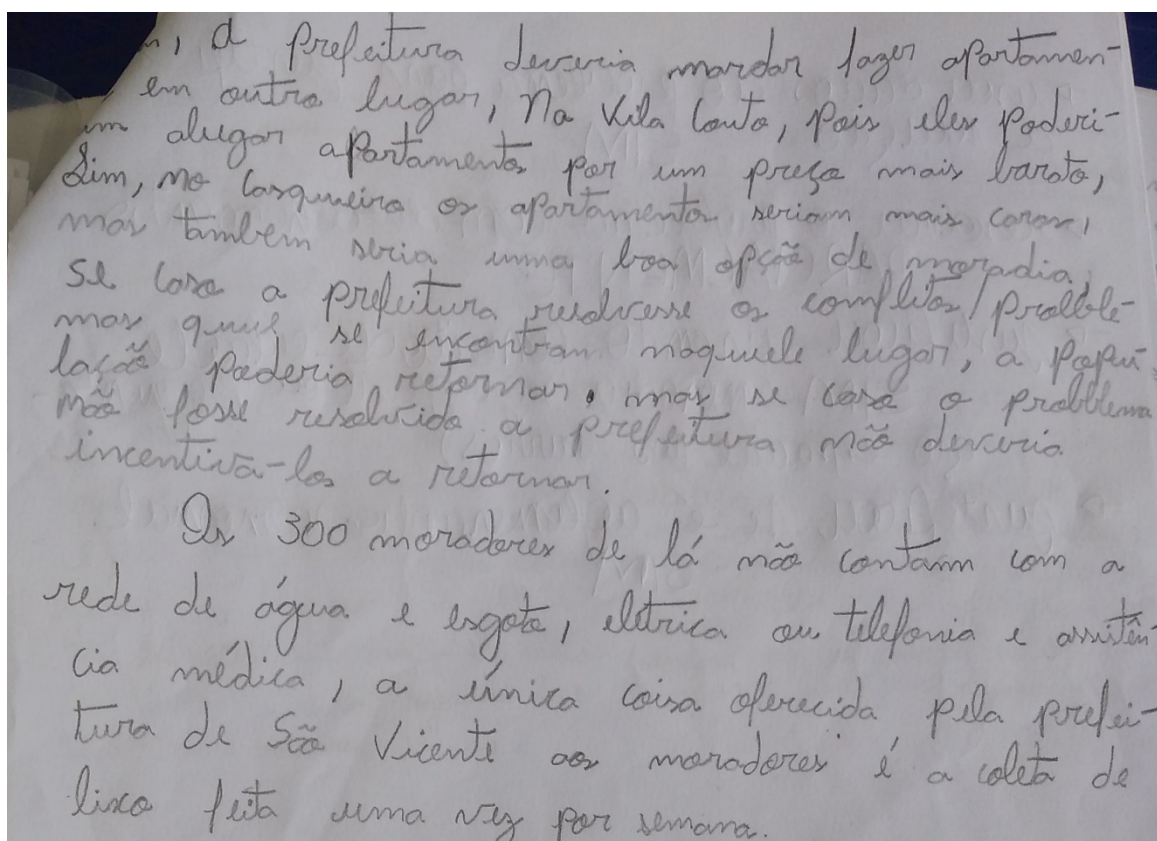 , a prefeitura deveria mandar fazer apartamen-
em outro lugar, Na Vila Couto, pois eles poderi-
am alugar apartamentos por um preço mais barato,
Sim, no Casqueiro os apartamentos seriam mais caros,
mas tambem seria uma boa opção de moradia,
se caso a prefeitura resolvesse os conflitos/probble-
mas que se encontran naquele lugar, a popu-
lação poderia retornar, mas se caso o probblema
não fosse resolvido a prefeitura não deveria
incentivá-los a retornar.
Os 300 moradores de lá não contam com a
rede de água e esgoto, elétrica ou telefonia e assitên-
cia médica, a única coisa oferecida pela prefei-
tura de São Vicente aos moradores é a coleta de
lixo feita uma vez por semana.